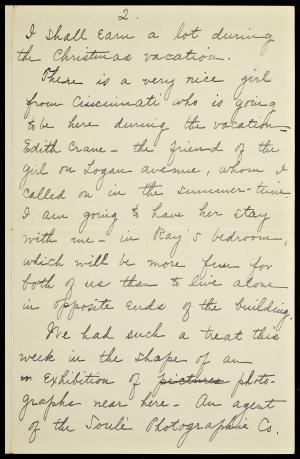 2.
I shall earn a lot during
the Christmas vacation.
There is a very nice girl
from Cincinnati who is going
to be here during the vacation –
Edith Crane – the friend of the
girl on Logan avenue, whom I
called on in the summer-time.
I am going to have her stay
with me – in Ray's bedroom,
which will be more fun for
both of us than to live alone
in opposite ends of the building.
We had such a treat this
week in the shape of an
Exhibition of pictures photo-
graphs near here – An agent
of the Soulé Photographic Co.